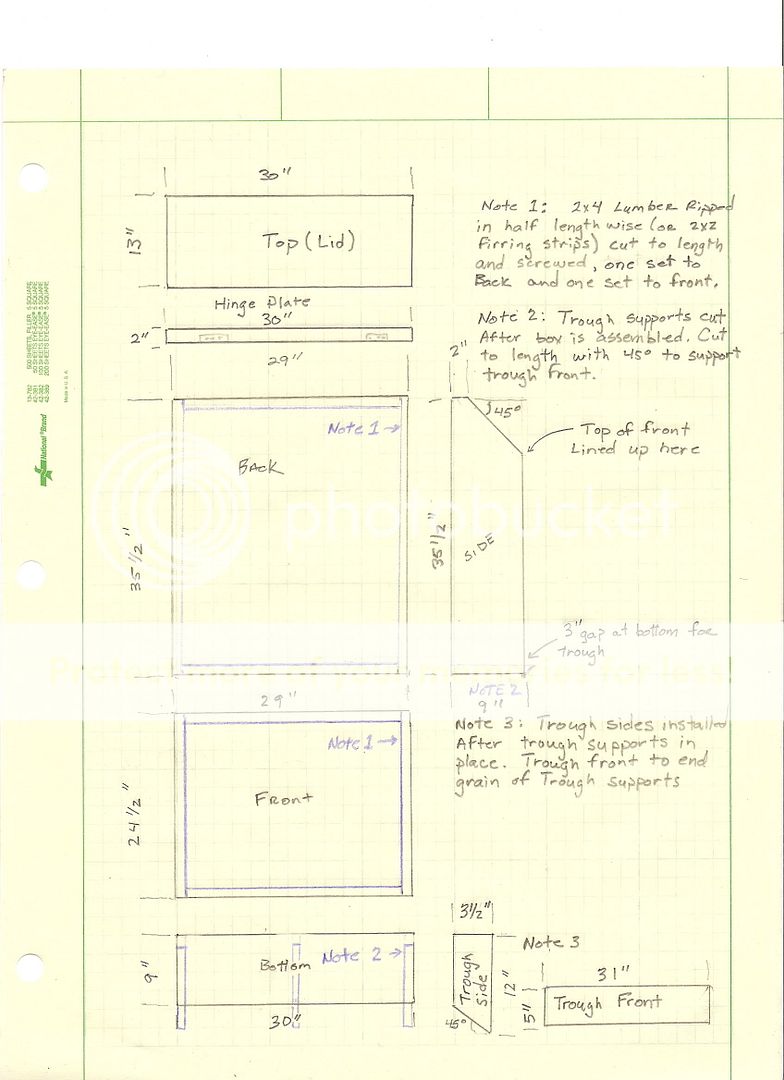 30"
13"
Top (Lid)
Hinge Plate
30"
2"
29"
Note 1 →
Back
35 1/2"
29"
Note 1 →
Front
24 1/2"
Bottom
Note 2 →
9"
30"
Note 1: 2x4 Lumber Ripped
in half length wise (or 2x2
Firring strips) cut to length
and screwed, one set to
Back and one set to front.
Note 2: Trough supports cut
After box is assembled. Cut
to length with 45° to support
trough front.
2"
45°
Top of front
Lined up here
35 1/2"
SIDE
3" gap at bottom for
trough
NOTE 2
9"
Note 3: Trough sides installed
After trough supports in
place. Trough front to end
grain of Trough supports
3 1/2"
Note 3
Trough
Side
12"
45°
31"
5"
Trough Front
National® Brand
Made in U.S.A.
photobucket
Protect more of your memories for less!